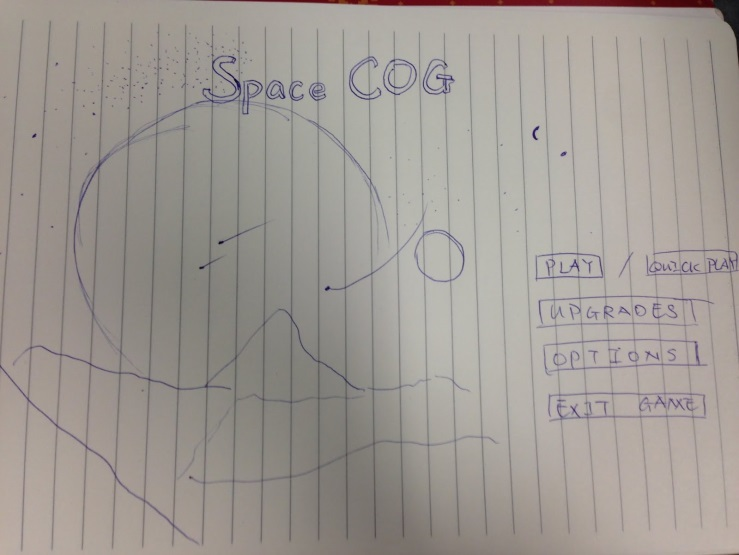 Space COG
PLAY / QUICK PLAY
UPGRADES
OPTIONS
EXIT GAME